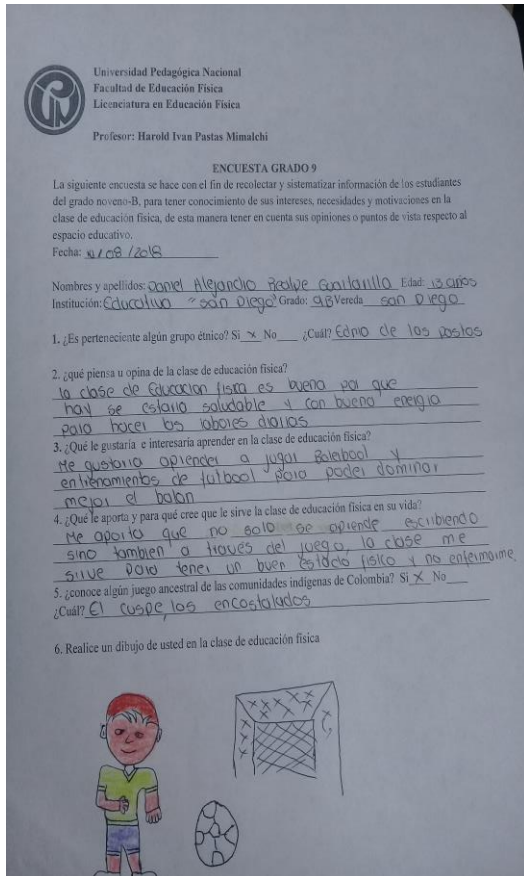 Universidad Pedagógica Nacional
Facultad de Educación Física
Licenciatura en Educación Física
Profesor: Harold Ivan Pastas Mimalchi
ENCUESTA GRADO 9
La siguiente encuesta se hace con el fin de recolectar y sistematizar información de los estudiantes
del grado noveno-B, para tener conocimiento de sus intereses, necesidades y motivaciones en la
clase de educación física, de esta manera tener en cuenta sus opiniones o puntos de vista respecto al
espacio educativo.
Fecha: /08/2018
Nombres y apellidos: Daniel Alejandro Realpe Edad: 13 años
Institución: Educativa "san Diego" Grado: 9B Vereda san Diego
1. ¿Es perteneciente algún grupo étnico? Si x No ¿Cuál? Ednio de los pastos
2. ¿qué piensa u opina de la clase de educación física?
la clase de Educacion fisica es buena por que
hay se estaria saludable y con buena energia
para hacer las labores diarias
3. ¿Qué le gustaría e interesaría aprender en la clase de educación física?
Me gustaria aprender a jugar Boleibool y
entrenamientos de futbool para poder dominar
mejor el balon
4. ¿Qué le aporta y para qué cree que le sirve la clase de educación física en su vida?
Me aporta que no solo se aprende escribiendo
sino tambien a traves del juego, la clase me
sirve para tener un buen estado fisico y no enfermarme
5. ¿conoce algún juego ancestral de las comunidades indígenas de Colombia? Si X No
¿Cuál? El cuspe, los encostalados
6. Realice un dibujo de usted en la clase de educación física